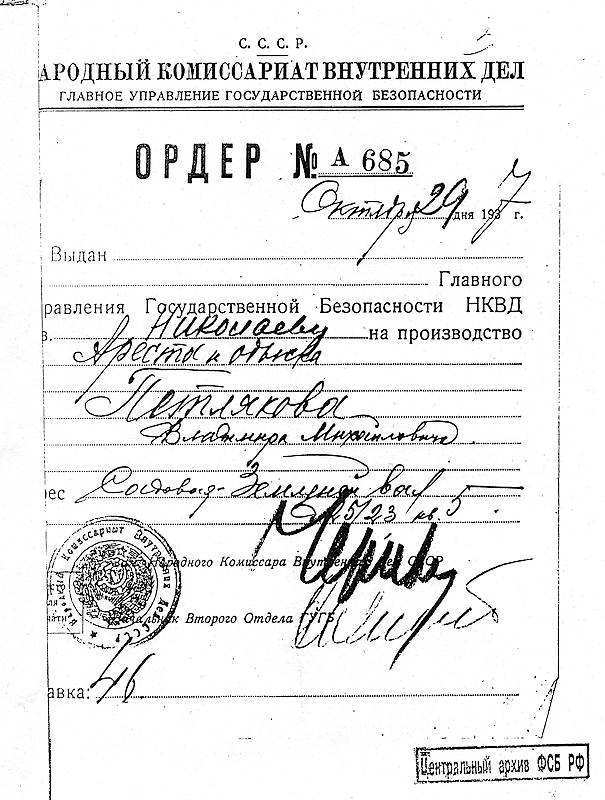 С. С. С. Р.
АРОДНЫЙ КОМИССАРИАТ ВНУТРЕННИХ ДЕЛ
ГЛАВНОЕ УПРАВЛЕНИЕ ГОСУДАРСТВЕННОЙ БЕЗОПАСНОСТИ
ОРДЕР № А 685
Октября 29 дня 1937 г.
Выдан
Главного
равления Государственной Безопасности НКВД
в. Николаеву на производство
Ареста и обыска
Петлякова
Владимира Михайловича.
рес Садовая-Земляной вал
д 25/23 кв. 5
Зам. Народного Комиссара Внутренних Дел СССР
Народный Комиссариат Внутренних Дел СССР
Начальник Второго Отдела ГУГБ
авка: 46
Центральный архив ФСБ РФ